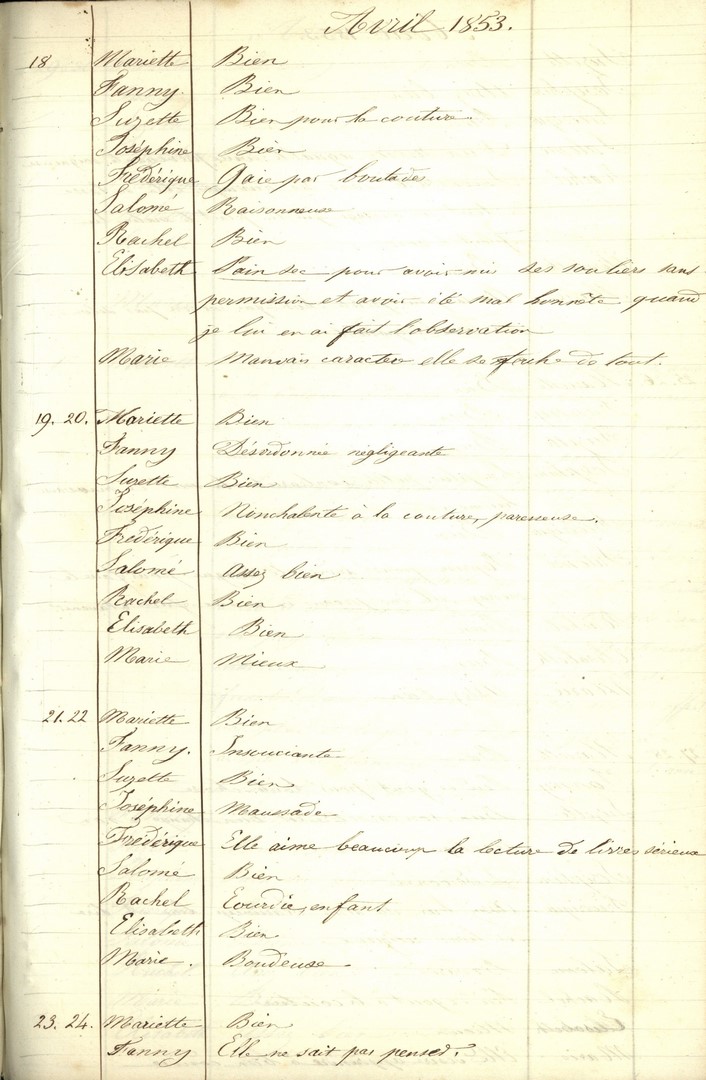 Avril 1853.
18 Mariette Bien
Fanny. Bien
Suzette Bien pour la couture.
Joséphine Bien
Frédérique Gaie par boutades
Salomé Raisonneuse
Rachel Bien
Elisabeth Pain sec pour avoir mis ses souliers sans
permission et avoir été mal honnête quand
je lui en ai fait l'observation
Marie Mauvais caractère elle se fache de tout.
19. 20. Mariette Bien
Fanny Désordonnée négligeante
Suzette Bien
Joséphine Nonchalente à la couture, paresseuse.
Frédérique Bien
Salomé Assez bien
Rachel Bien
Elisabeth Bien
Marie Mieux
21. 22 Mariette Bien
Fanny. Insouciante
Suzette Bien
Joséphine Maussade
Frédérique Elle aime beaucoup la lecture de livres sérieux
Salomé Bien
Rachel Etourdie, enfant
Elisabeth Bien
Marie. Boudeuse
23. 24. Mariette Bien
Fanny Elle ne sait pas penser.